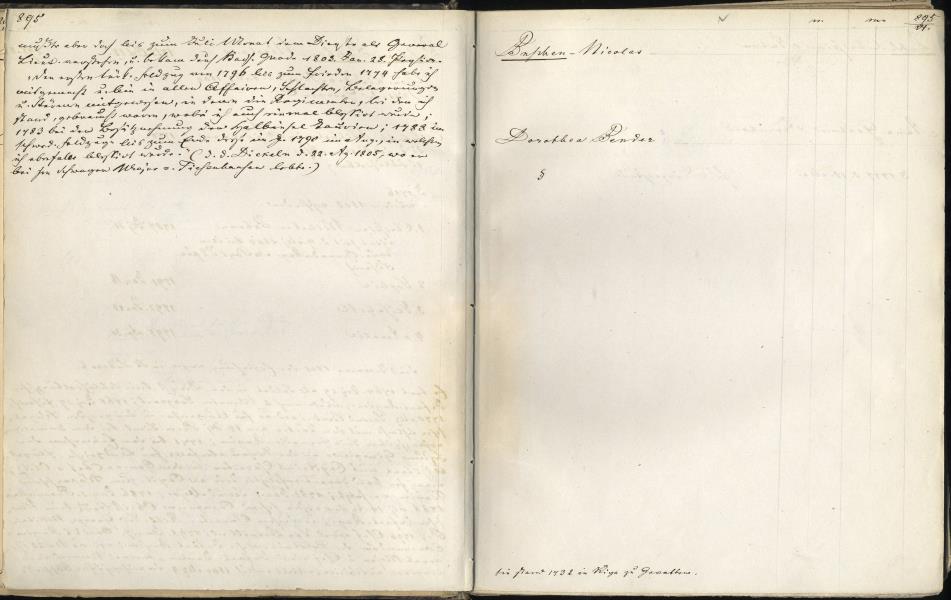 895
mußte aber doch bis zum Juli Monat dem Dienste als General
Lieut. vorstehen, u. bekam durch Kays. Gnade 1802. Jan. 28. Pension.
„Den ersten türk. Feldzug von 1796 bis zum Frieden 1774 habe ich
mitgemacht u. bin in allen Affairen, Schlachten, Belagerungen
u. Stürmen mitgewesen, in denen die Regimenter, bei den ich
stand, gebraucht waren, wobei ich auch einmal blessirt wurde;
1783 bei der Besitznehmung der Halbinsel Taurien; 1788 im
schwed. Feldzuge bis zum Ende desse im J. 1790 in
ich ebenfalls blessirt wurde." (d. d. Dickeln d. 22. Ag. 1805, wo er
bei sn Schwager Major v. lebte.)
895
21.
m
mm
Buschen - Nicolas
Dorothea Bender
§
sie stand 1732 in Riga zu Gevattern.